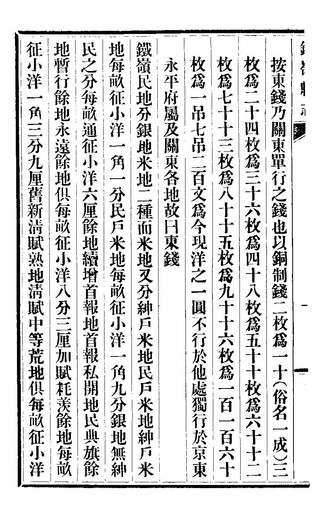 按東錢乃關東單行之錢也以銅制錢二枚爲一十(俗名一成)三
枚爲二十四枚爲三十六枚爲四十八枚爲五十十枚爲六十十二
枚爲七十十三枚爲八十十五枚爲九十十六枚爲一百一百六十
枚爲一吊七吊二百文爲今現洋之一圓不行於他處獨行於京東
永平府屬及關東各地故曰東錢
鐵嶺民地分銀地米地二種而米地又分紳戶米地民戶米地紳戶米
地每畝征小洋一角一分民戶米地每畝征小洋一角九分銀地無紳
民之分每畝通征小洋六厘餘地續增首報地首報私開地民典旗餘
地暫行餘地永遠餘地俱每畝征小洋八分三厘加賦耗羨餘地每畝
征小洋一角三分九厘舊新清賦熟地清賦中等荒地俱每畝征小洋